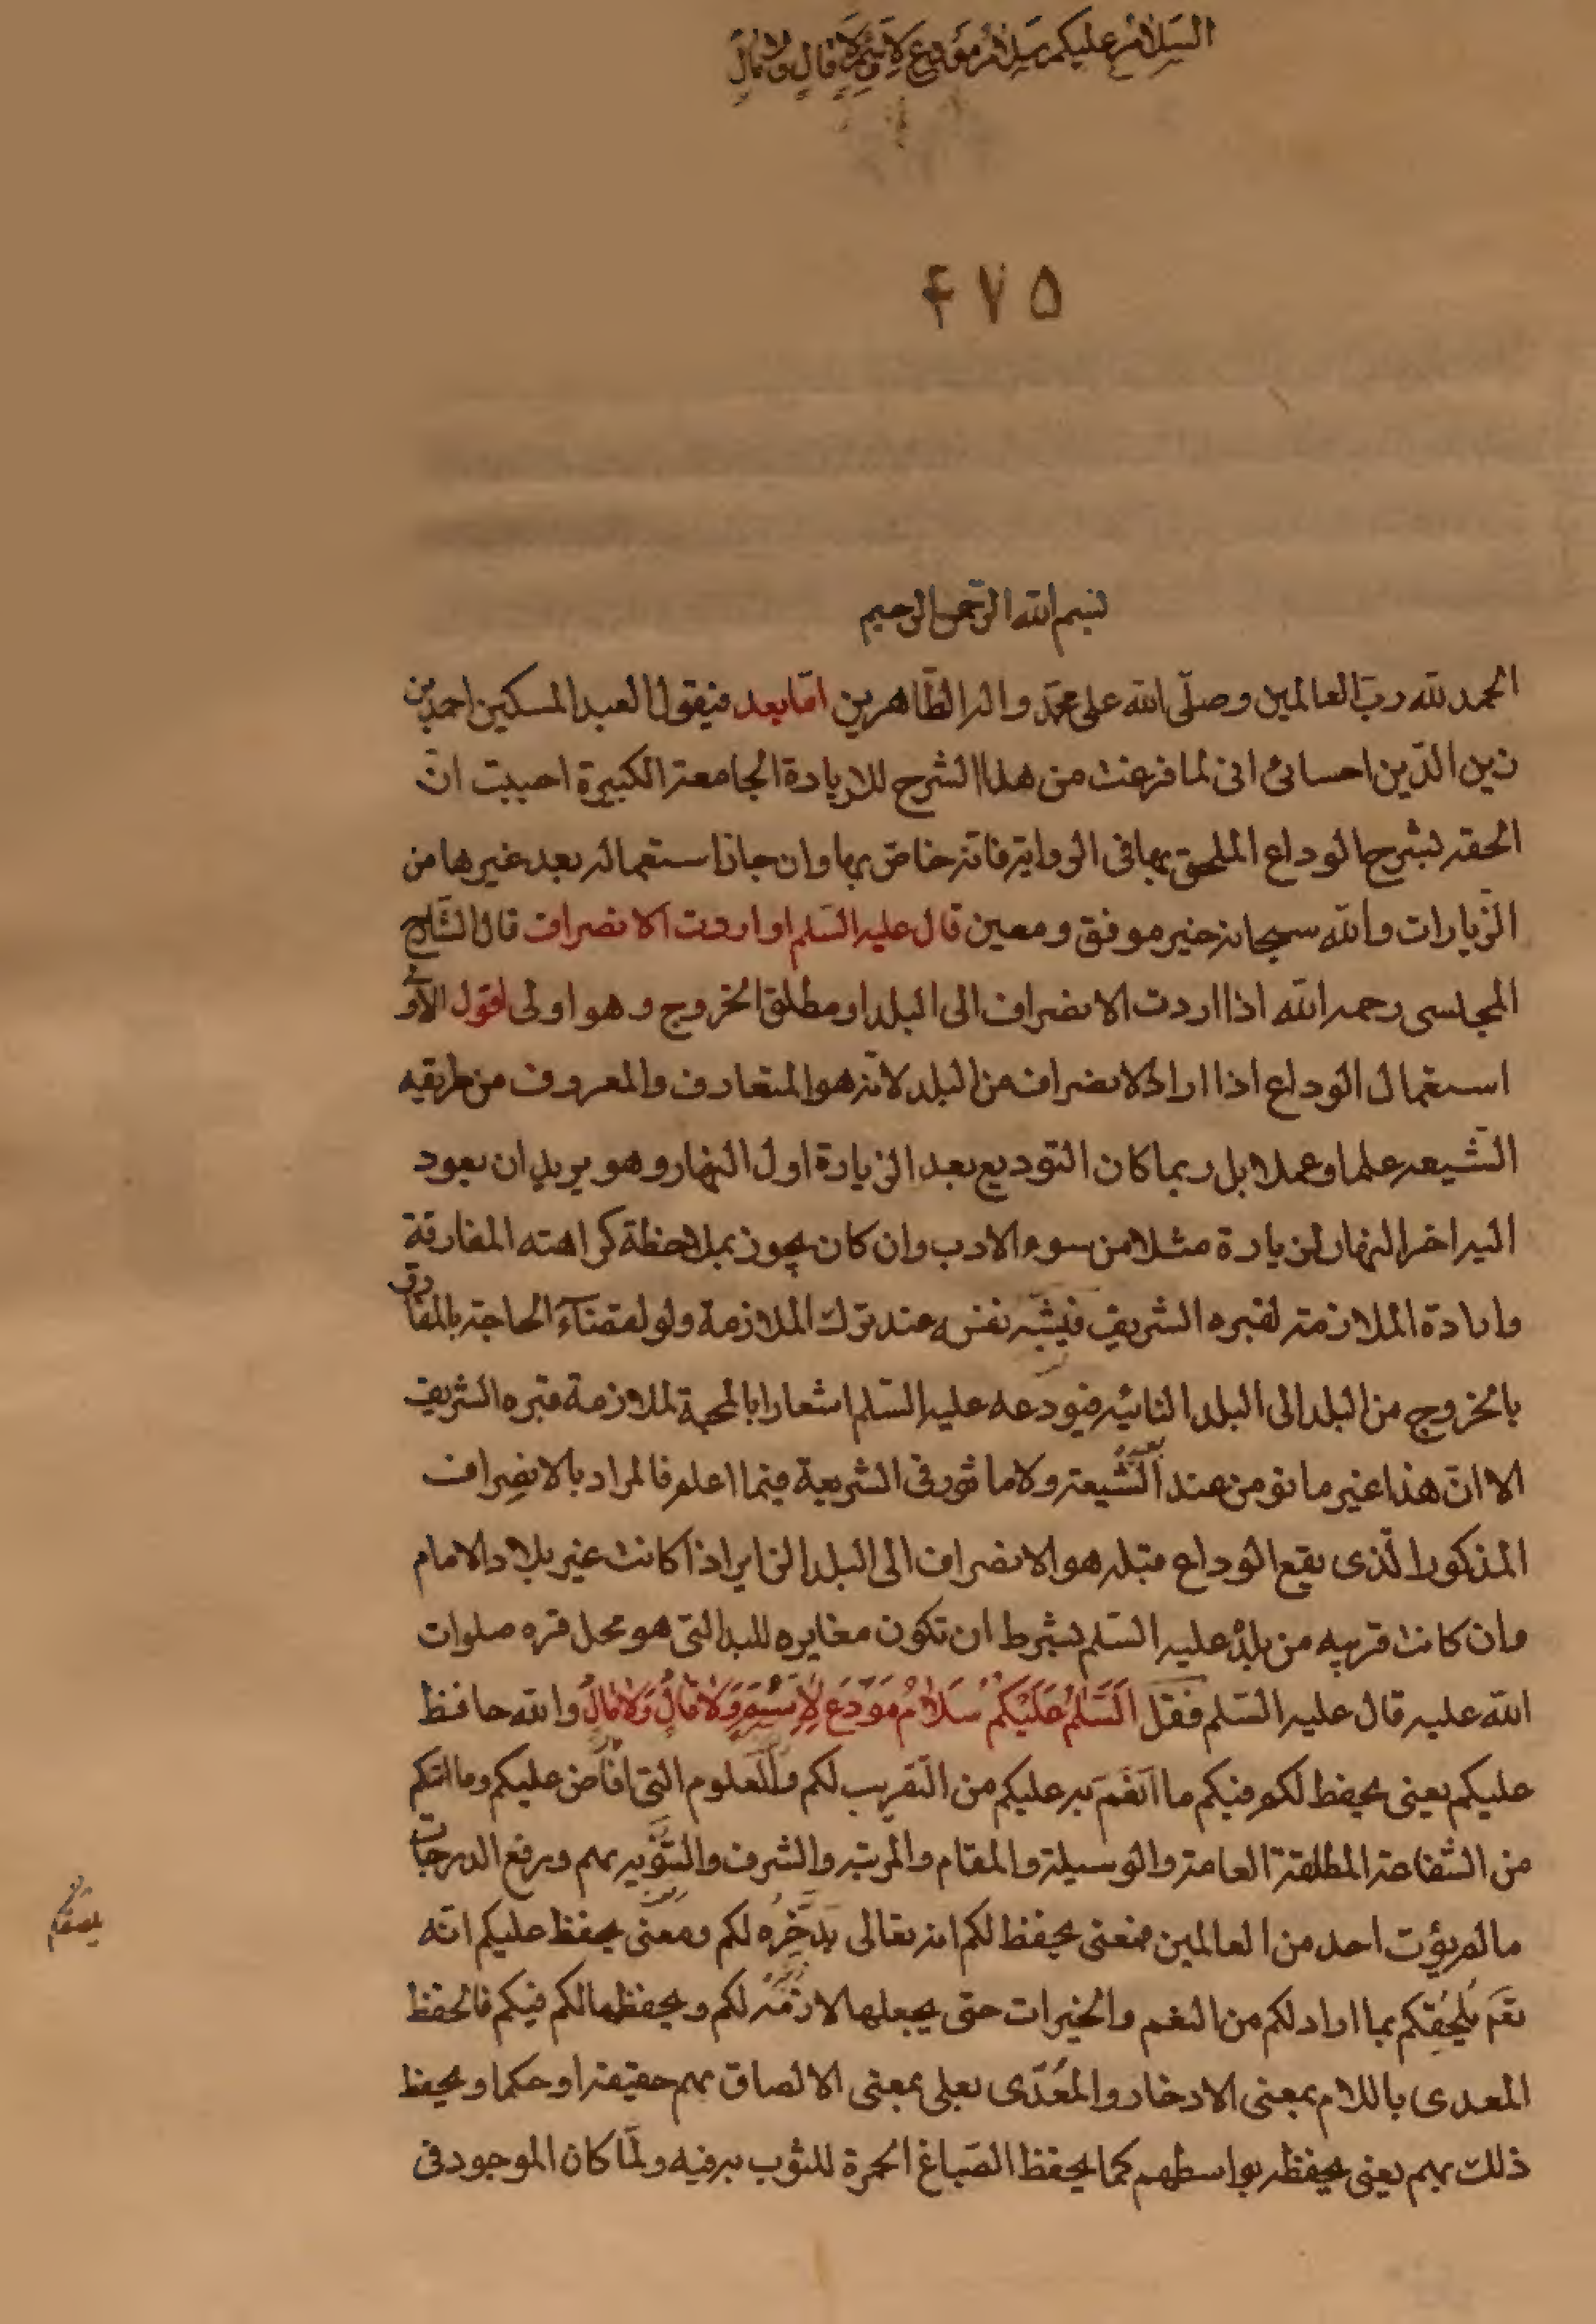 السلام عليكم سلام مودع لا سئم ولا قال ولا مال
۴۷۵
بسم الله الرحمن الرحيم
الحمد لله ربّ العالمين وصلّى الله على محمّد واله الطّاهرين امّا بعد فيقول العبد المسكين احمد بن
زين الدّين احسائى انى لما فرغت من هذا الشرح للزيادة الجامعة الكبيرة احببت انّ
الحقه بشرح الوداع الملحق بها فى الرواية فانه خاصّ بها وان جاز استعماله بعد غيرها من
الزيارات والله سبحانه خير موفق ومعين قال عليه السّلم اذا اردت الانصراف قال الشّارح
المجلسى رحمه الله اذا اردت الانصراف الى البلد او مطلق الخروج وهو اولى اقول الاولى
استعمال الوداع اذا اراد الانصراف من البلد لانّه هو المتعارف والمعروف من طريقيه
الشّيعه علما وعملا بل ربما كان التوديع بعد الزيارة اول النهار وهو يريد ان يعود
اليه اخر النهار لزيارة مثلا من سوء الادب وان كان يجوز بملاحظة كراهته المفارقة
وارادة الملازمة لقبره الشريف فيشبّه نفسه عند ترك الملازمة ولو لقضآء الحاجة بالمفارق
بالخروج من البلد الى البلد النائيه فيودعه عليه السّلم اشعارا بالمحبة لملازمة قبره الشريف
الا انّ هذا غير مانوس عند الشّيعة ولا ماثور فى الشريعة فيما اعلم فالمراد بالانصراف
المذكور الّذى يقع الوداع قبله هو الانصراف الى البلد الزاير اذا كانت غير بلاد الامام
وان كانت قريبه من بلده عليه السّلم بشرط ان تكون مغايره للبد التى هو محل قره صلوات
الله عليه قال عليه السّلم فقل اَلسَّلَمُ عَلَيْكُمْ سَلامُ مُوَدِّعٍ لاسَئِمٍ وَلا قالٍ وَلا مالٍ والله حافظ
عليكم يعنى يحفظ لكم وفيكم ما انعم به عليكم من التقريب لكم والعلوم التى افاض عليكم وما اتيكم
من الشفاعة المطلقة العامة والوسيلة والمقام والمرتبه والشرف والتنويه بهم ورفع الدرجات
ما لم يؤت احد من العالمين فمعنى يحفظ لكم انه تعالى يدّخره لكم ومعنى يحفظ عليكم انّه
تعم يلحقكم بما اراد لكم من النعم والخيرات حتى يجعلها لازمة لكم ويحفظها لكم فيكم فالحفظ
المعدى باللام بمعنى الادخار والمعدّى بعلى بمعنى الالصاق بهم حقيقة او حكما ويحفظ
ذلك بهم يعنى يحفظه بواسطهم كما يحفظ الصّباغ الحمرة للثوب به وفيه ولمّا كان الموجود فى